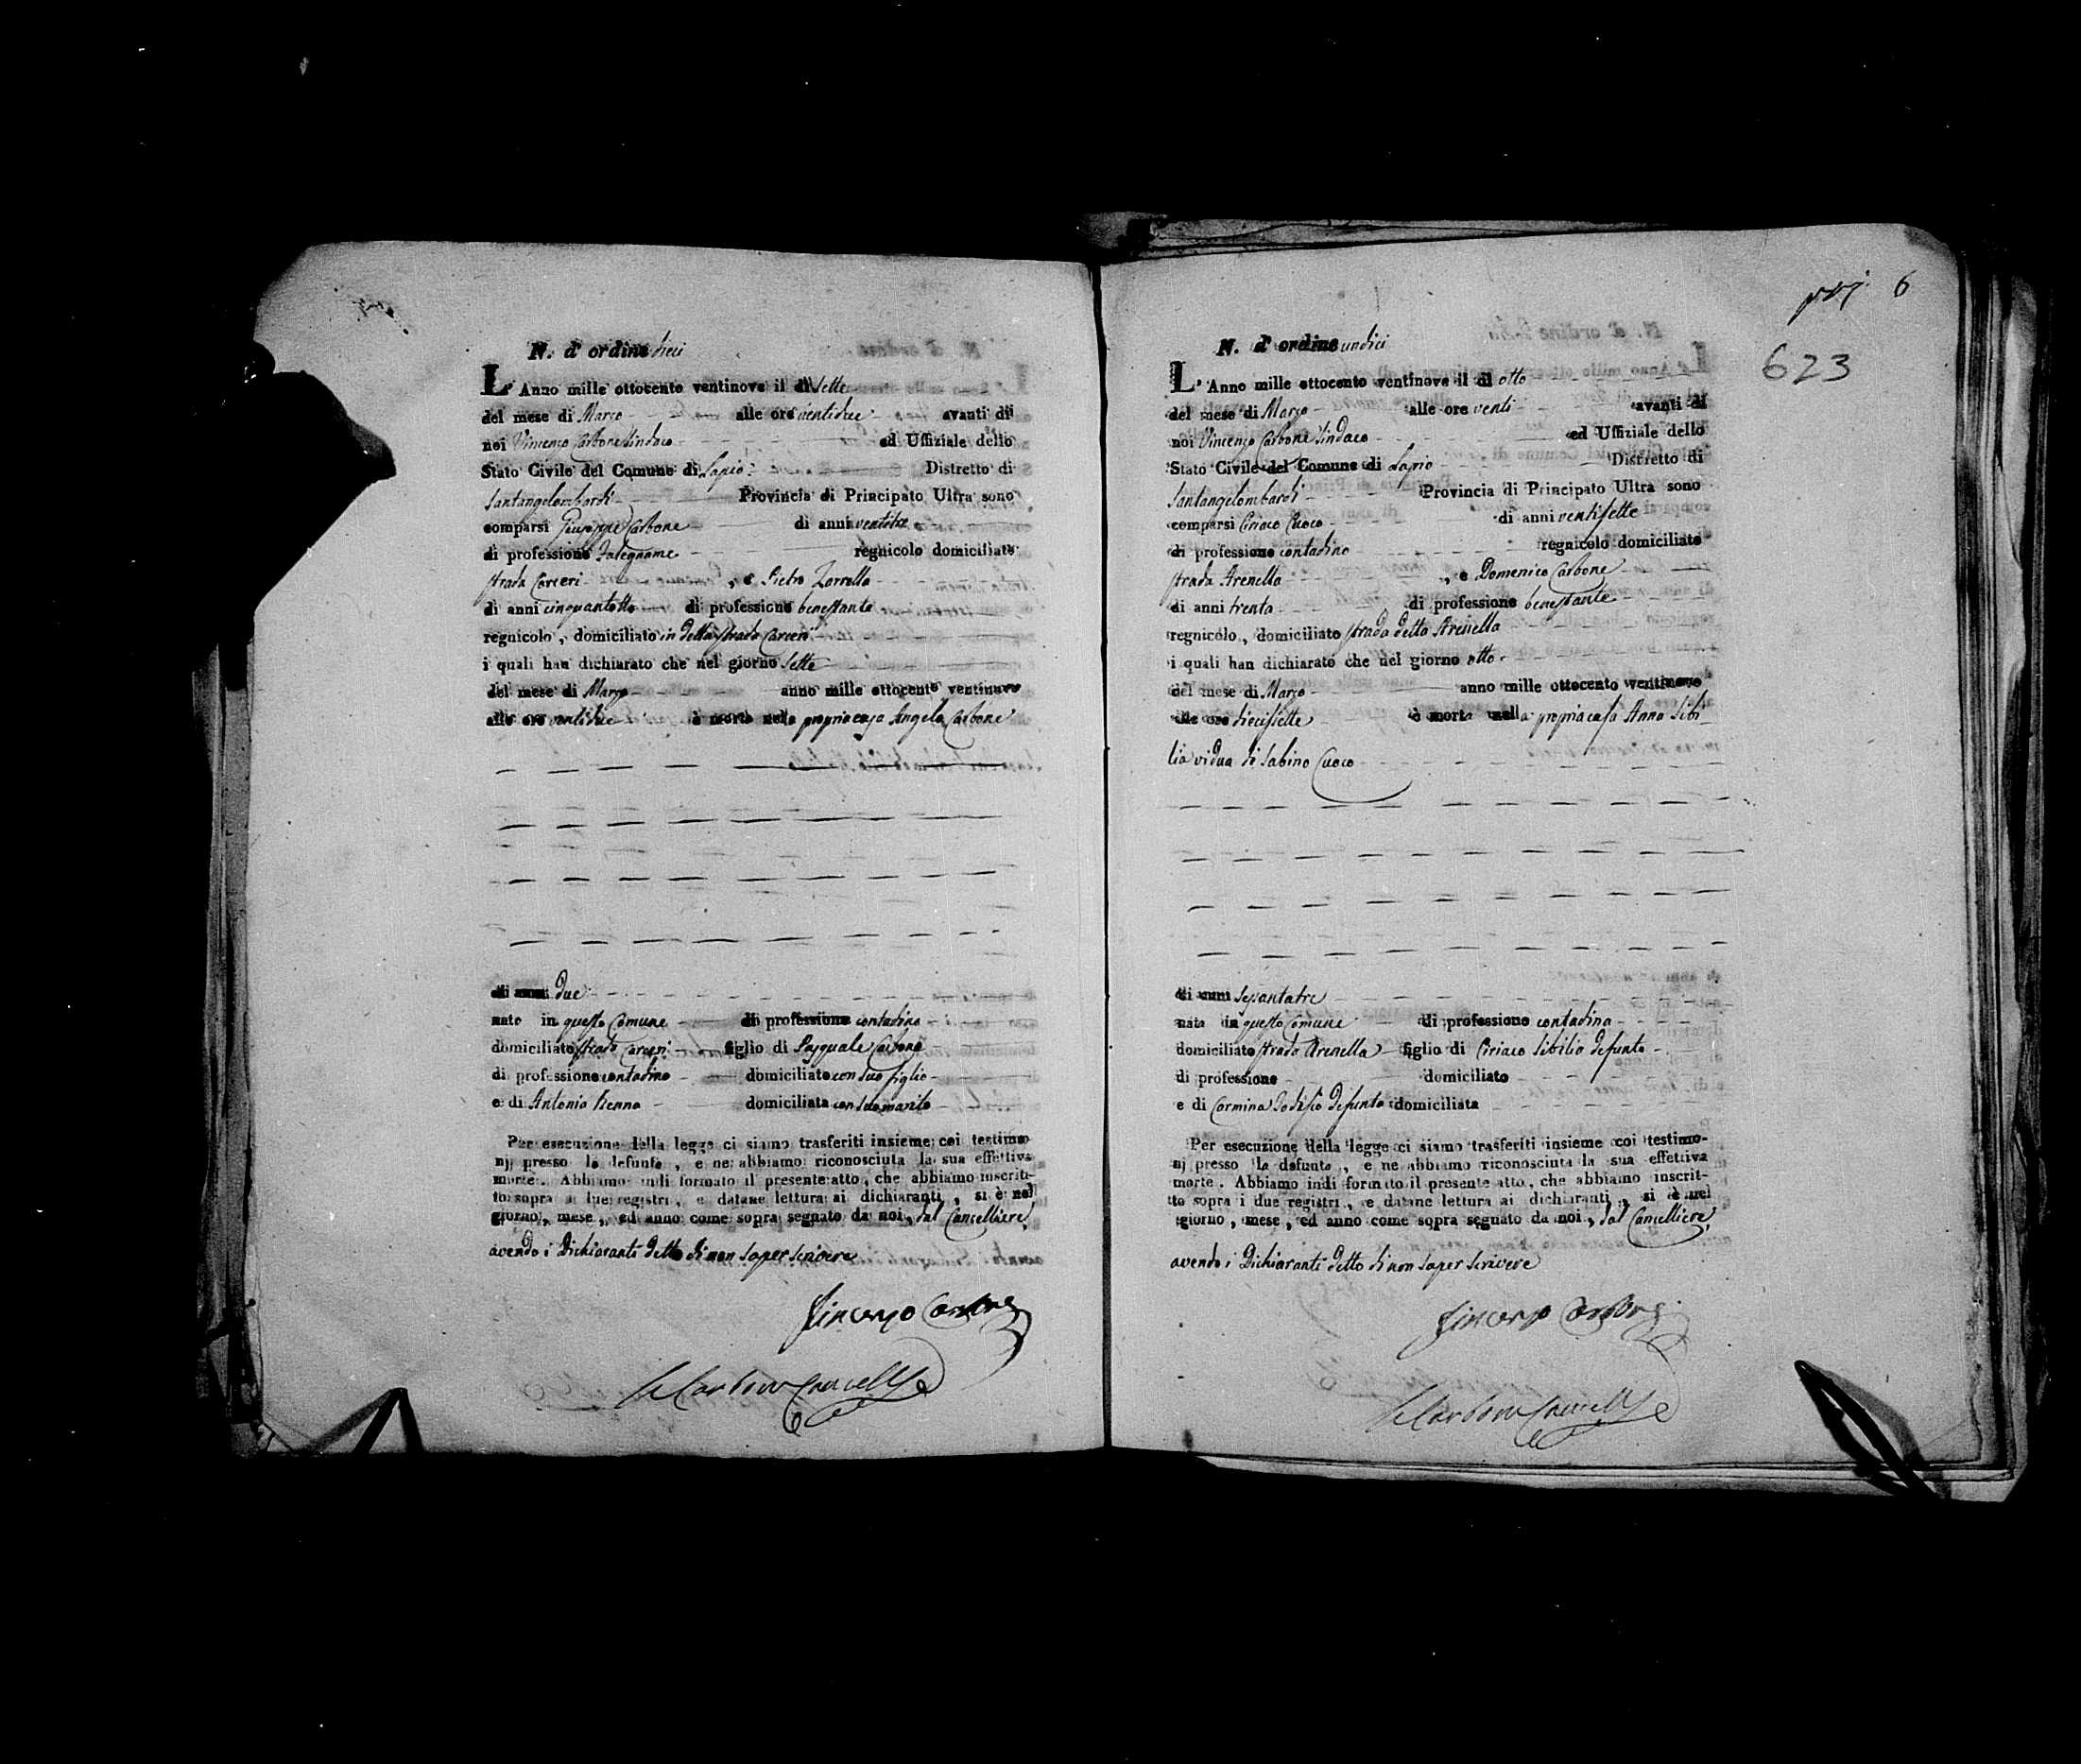 N. d' ordine dieci
L' Anno mille ottocento ventinove il dì sette
del mese di Marzo alle ore ventidue avanti di
noi Vincenzo Carbone Sindaco ed Uffiziale dello
Stato Civile del Comune di Lapio Distretto di
Santangelombardi Provincia di Principato Ultra sono
comparsi Giuseppe Carbone di anni ventitre
di professione Falegname regnicolo domiciliato
strada Carceri , e Pietro Zarrella
di anni cinquantotto di professione benestante
regnicolo , domiciliato in detta strada Carceri
i quali han dichiarato che nel giorno sette
del mese di Marzo anno mille ottocento ventinove
alle ore ventidue è morta nella propria casa Angela Carbone
di anni due
nato in questo Comune di professione contadina
domiciliato strada Carceri figlio di Pasquale Carbone
di professione contadino domiciliato con suo figlio
e di Antonia domiciliata con suo marito
Per esecuzione della legge ci siamo trasferiti insieme coi testimo-
nj presso la defunta , e ne abbiamo riconosciuta la sua effettiva
morte . Abbiamo indi formato il presente atto , che abbiamo inscrit-
to sopra i due registri , e datane lettura ai dichiaranti , si è nel
giorno , mese , ed anno come sopra segnato da noi , dal Cancelliere
avendo i Dichiaranti detto di non saper scrivere
Vincenzo Carbone
Carbone Cancellre
6
623
N. d' ordine undici
L' Anno mille ottocento ventinove il dì otto
del mese di Marzo alle ore venti avanti di
noi Vincenzo Carbone Sindaco ed Uffiziale dello
Stato Civile del Comune di Lapio Distretto di
Santangelombardi Provincia di Principato Ultra sono
comparsi Ciriaco Cuoco di anni ventisette
di professione contadino regnicolo domiciliato
strada Arenella , e Domenico Carbone
di anni trenta di professione benestante
regnicolo , domiciliato strada detta Arenella
i quali han dichiarato che nel giorno otto
del mese di Marzo anno mille ottocento ventinove
alle ore diecisette è morta nella propria casa Anna Sibi-
lia vidua di Sabino Cuoco
di anni sessantatre
nata in questo Comune di professione contadina
domiciliato strada Arenella figlio di Ciriaco Sibilia defunto
di professione domiciliato
e di Carmina defunta domiciliata
Per esecuzione della legge ci siamo trasferiti insieme coi testimo-
nj presso la defunta , e ne abbiamo riconosciuta la sua effettiva
morte . Abbiamo indi formato il presente atto , che abbiamo inscrit-
to sopra i due registri , e datane lettura ai dichiaranti , si è nel
giorno , mese , ed anno come sopra segnato da noi , dal Cancelliere
avendo i Dichiaranti detto di non saper scrivere
Vincenzo Carbone
Carbone Cancellre